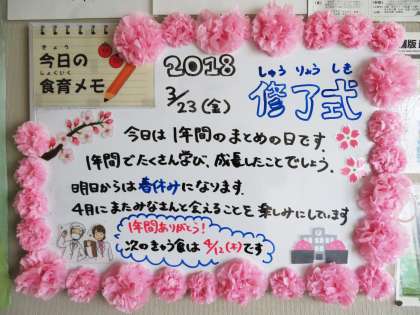 きょう
今日の
しょくいく
食育メモ
2018
3/23(金)
しゅうりょうしき
修了式
今日は1年間のまとめの日です。
1年間でたくさん学び、成長したことでしょう。
明日からは春休みになります。
4月にまたみなさんと会えることを楽しみにしています
1年間ありがとう！
次のきゅう食は4/12(木)です